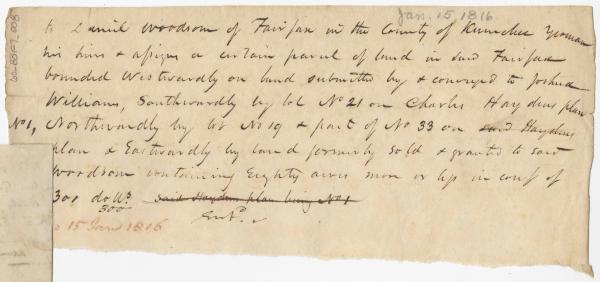 Jan. 15, 1816
to Daniel Woodsom of Fairfax in the County of Kennebec Yeoman
his heirs & assigns a certain parcel of land in said Fairfax
bounded Westwardly on land submitted by & conveyed to Joshua
Williams, Southwardly by lot No 21 on Charles Haydens plan
No 1, Northwardly by lot No 19 & part of No 33 on said Haydens
plan & Eastwardly by land formerly sold & granted to said
Woodsom containing Eighty acres more or less in consn of
300 dolls. said Haydens plan being No 1
300
Entd.
15 Jan 1816